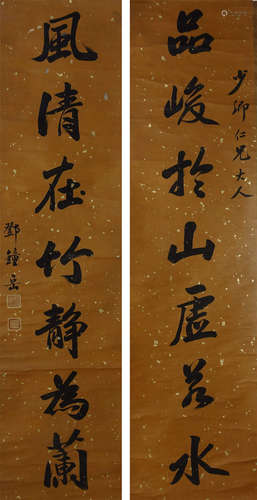 少卿仁兄大人
品峻於山虛若水
風清在竹靜為蘭
鄧鐘岳